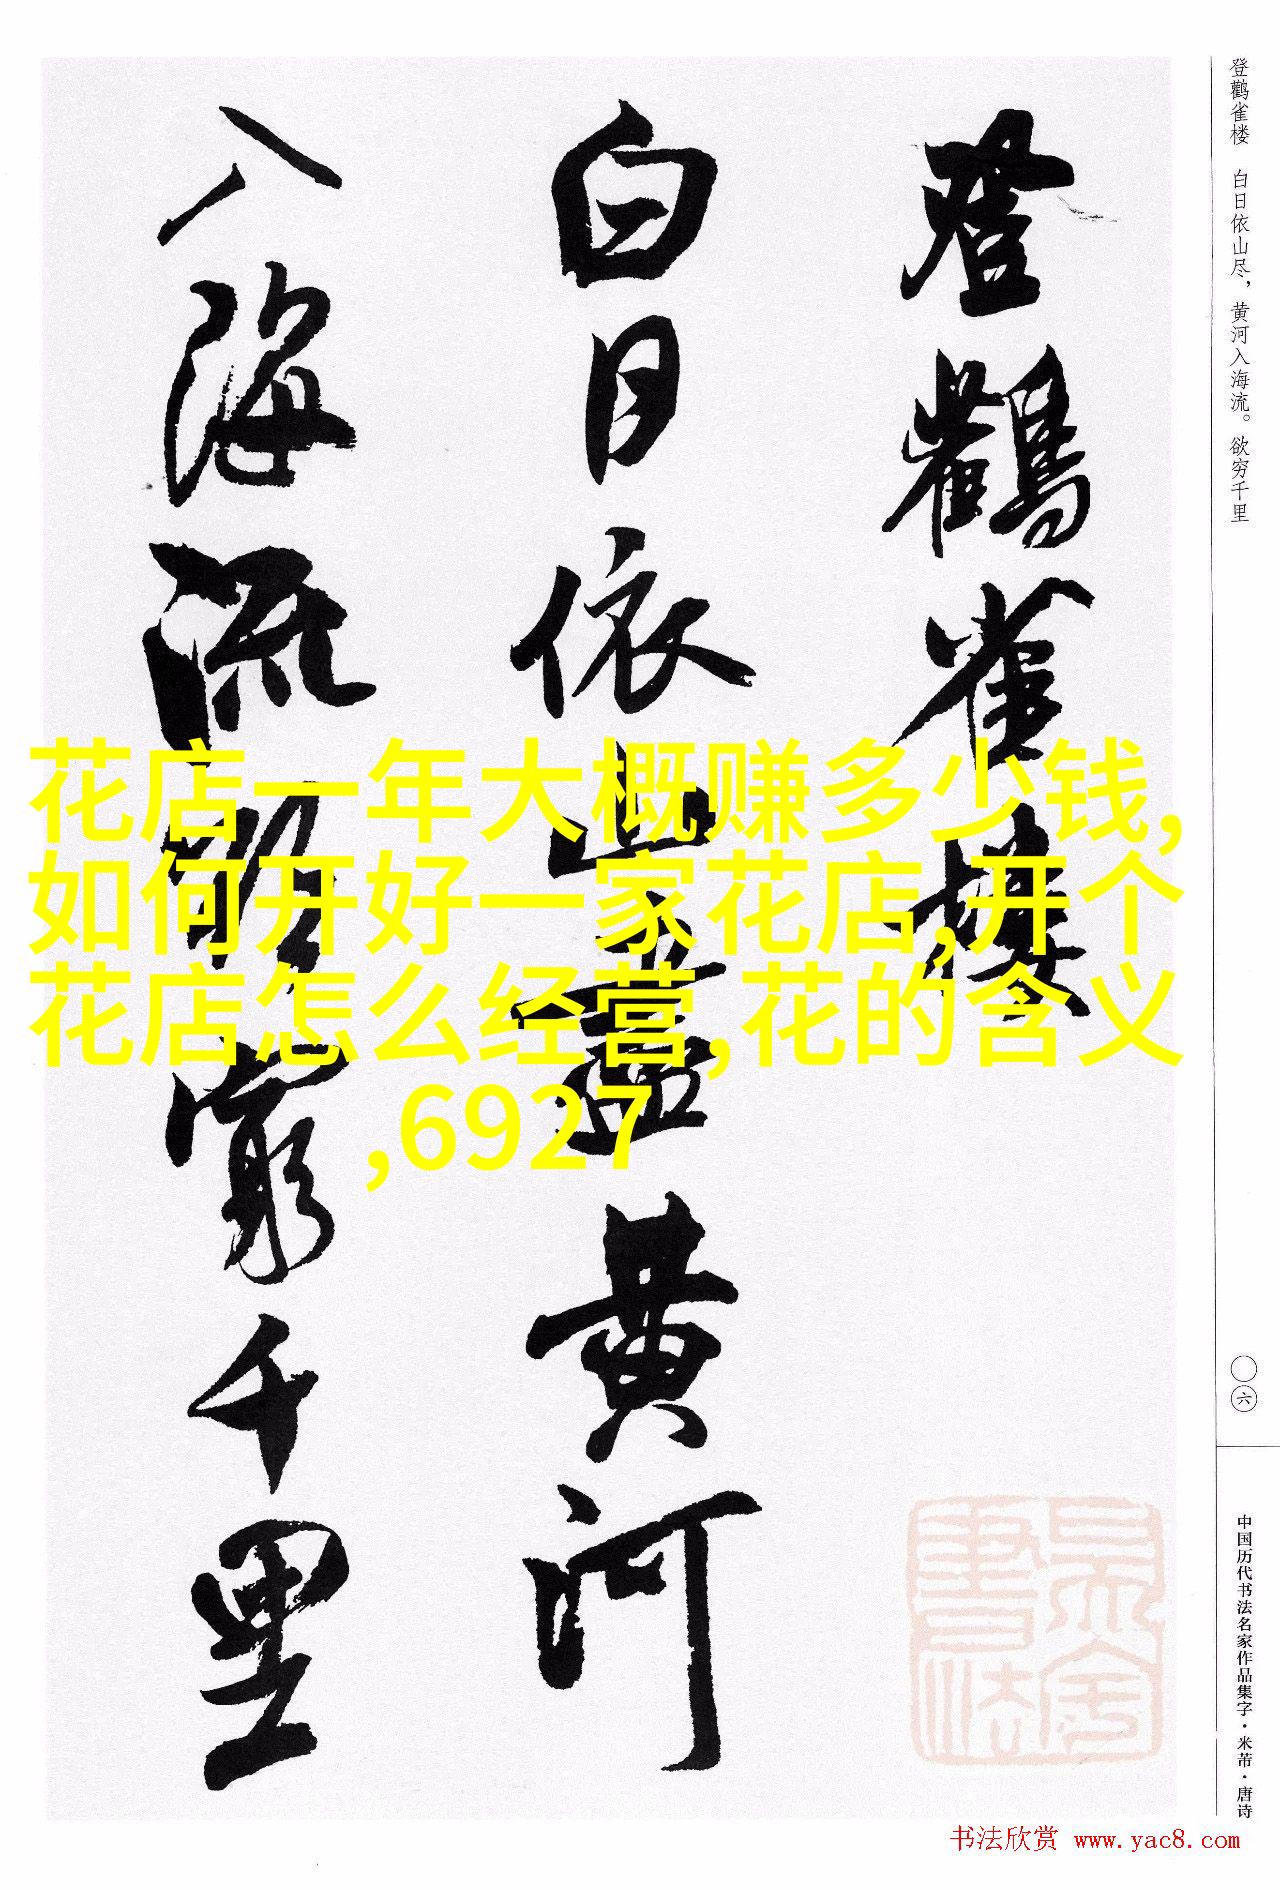 登鹳雀楼 白日依山尽，黄河入海流。欲穷千里
登鸛雀樓
白日依山盡黄河
入海流欲窮千里
花店一年大概赚多少钱,
如何开好一家花店,开个
花店怎么经营,花的含义
,6927
六
中国历代书法名家作品集字·米芾·唐诗
书法欣赏 www.yac8.com